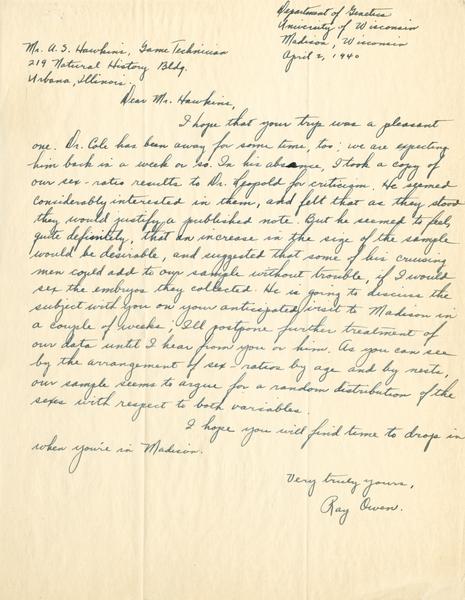 Department of Genetics
University of Wisconsin
Madison, Wisconsin
April 2, 1940
Mr. A. S. Hawkins, Game Technician
219 Natural History Bldg.
Urbana, Illinois.
Dear Mr. Hawkins,
I hope that your trip was a pleasant
one. Dr. Cole has been away for some time, too; we are expecting
him back in a week or so. In his absence, I took a copy of
our sex-ratio results to Dr. Leopold for criticism. He seemed
considerably interested in them, and felt that as they stood
they would justify a published note. But he seemed to feel,
quite definitely, that an increase in the size of the sample
would be desirable, and suggested that some of his cruising
men could add to our sample without trouble, if I would
sex the embryos they collected. He is going to discuss the
subject with you on your anticipated visit to Madison in
a couple of weeks; I'll postpone further treatment of
our data until I hear from you or him. As you can see
by the arrangement of sex-ratios by age and by nests,
our sample seems to argue for a random distribution of the
sexes with respect to both variables.
I hope you will find time to drop in
when you're in Madison.
Very truly yours,
Ray Owen.